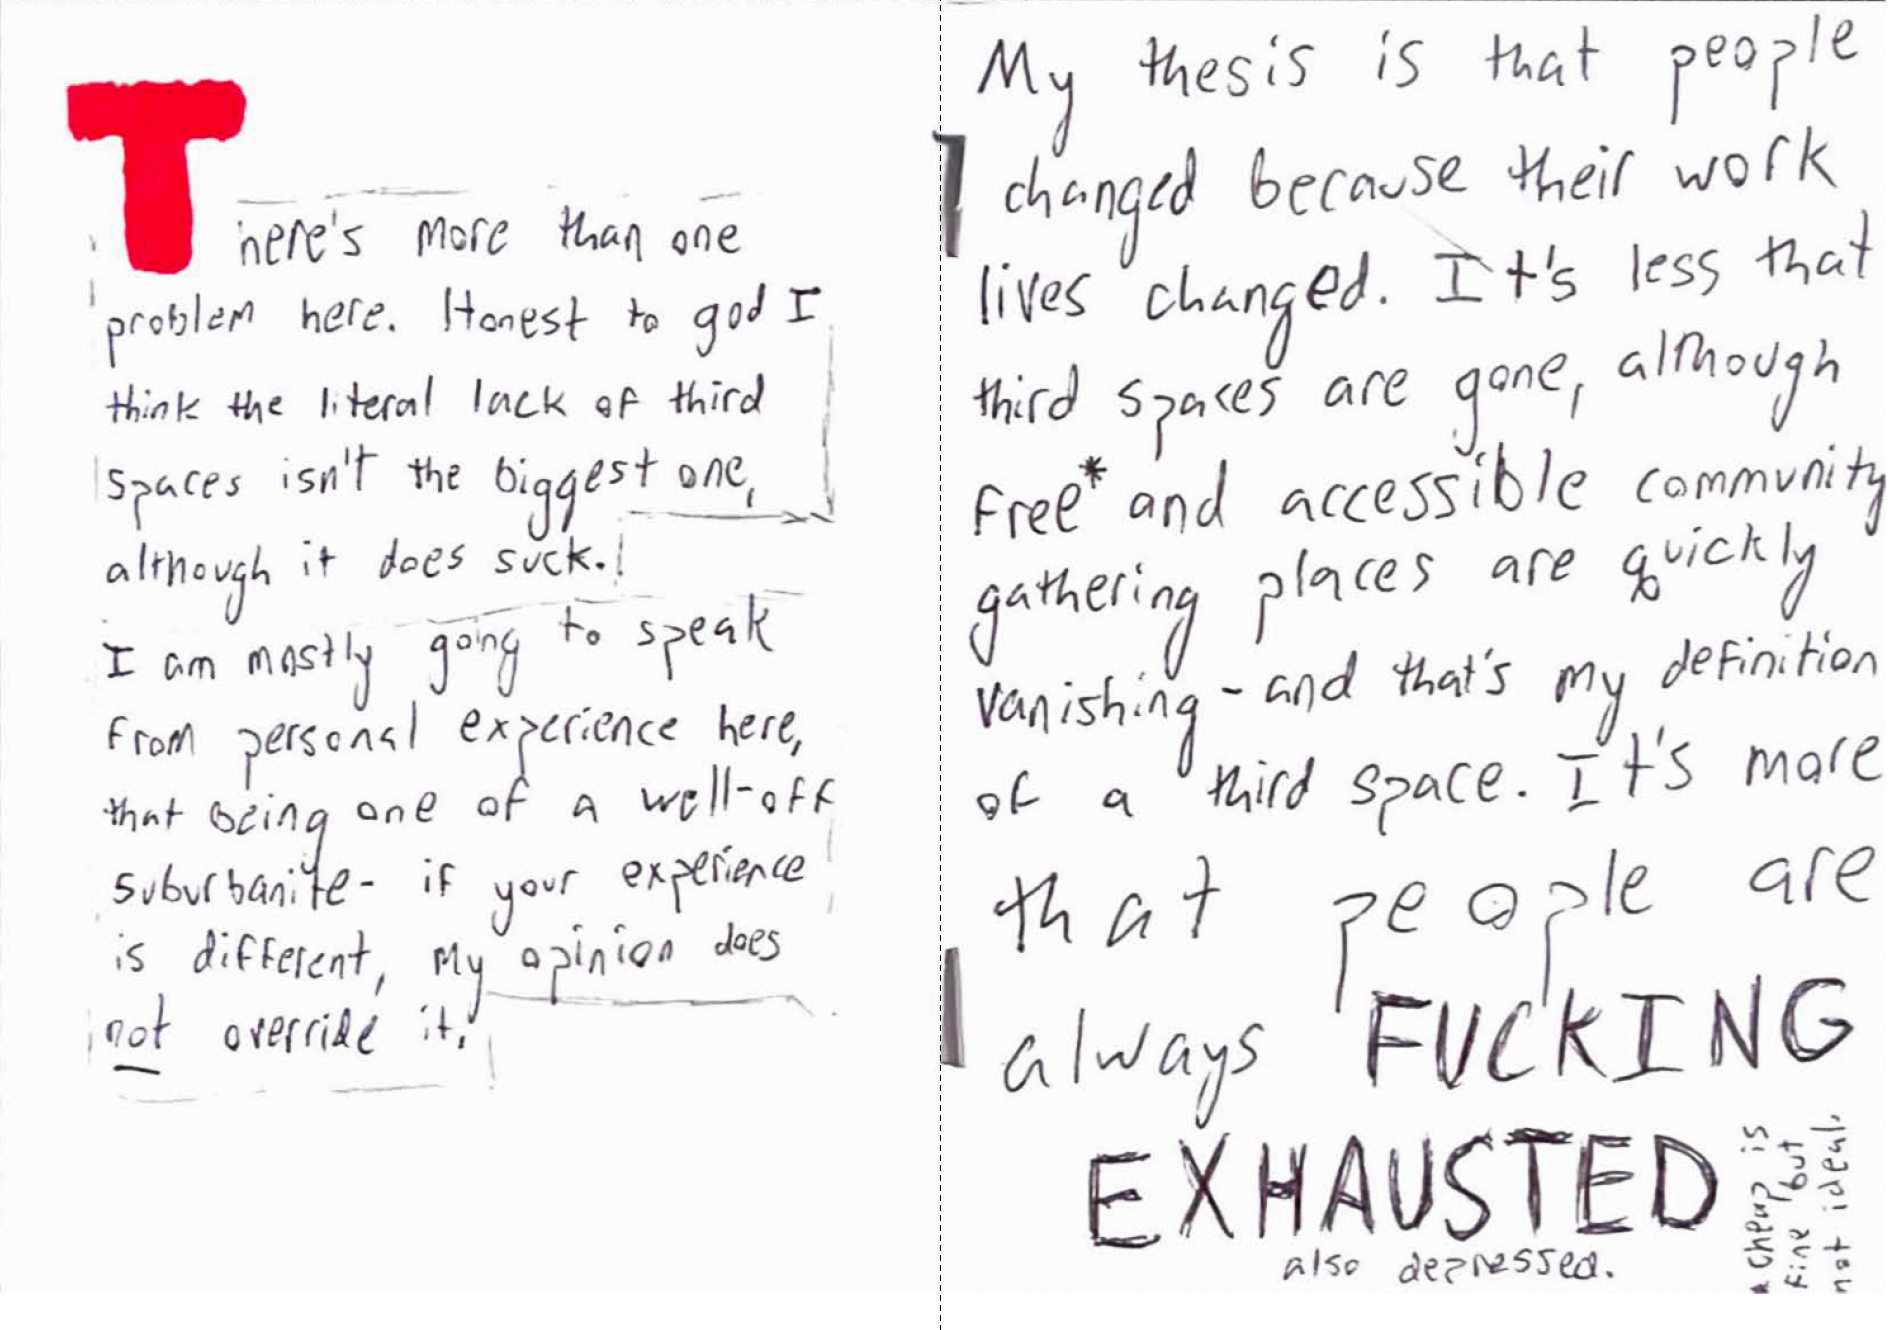 There's more than one
problem here. Honest to god I
think the literal lack of third
spaces isn't the biggest one,
although it does suck.
I am mostly going to speak
from personal experience here,
that being one of a well-off
suburbanite- if your experience
is different, my opinion does
not override it.
My thesis is that people
changed because their work
lives changed. It's less that
third spaces are gone, although
free* and accessible community
gathering places are quickly
vanishing - and that's my definition
of a third space. It's more
that people are
always FUCKING
EXHAUSTED
also depressed.
* cheap is
fine but
not ideal.